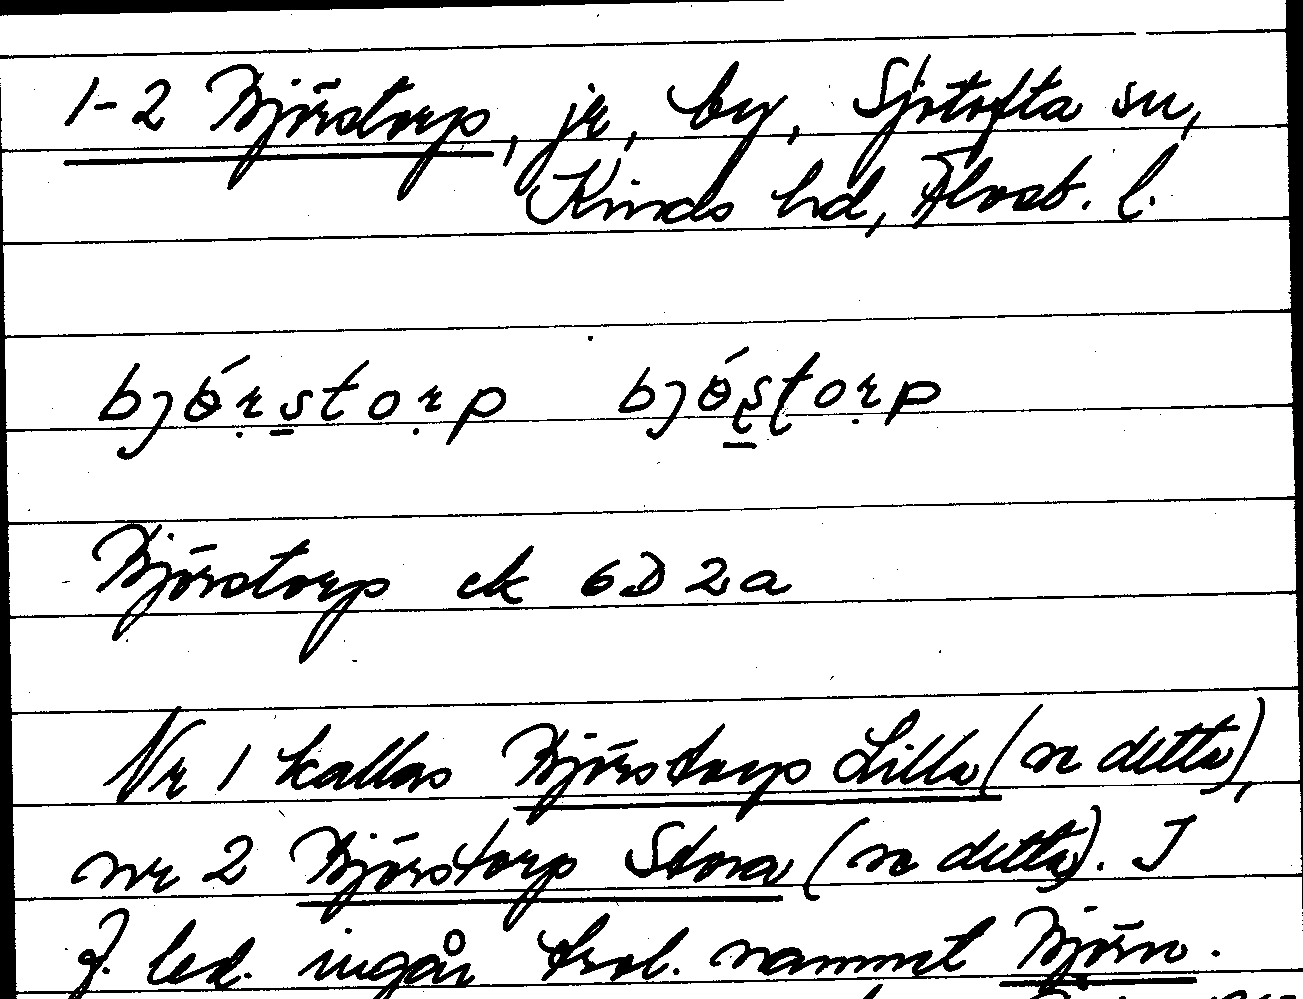 1-2 Björstorp, jr, by, Sjötofta sn,
Kinds hd, Älvsb. l.
bjǿṛs̱toṛp bjǿʂ̱ʈoṛp
Björstorp ek 6D 2a
Nr 1 kallas Björstorp Lilla (se detta),
nr 2 Björstorp Stora (se detta). I
f. led. ingår trol. namnet Björn.